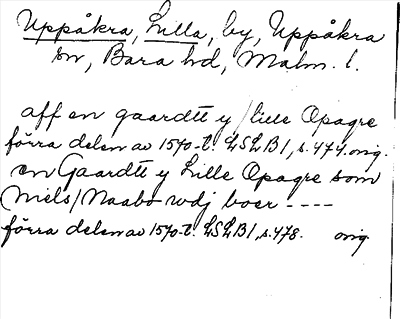 Uppåkra, Lilla, by, Uppåkra
sn, Bara hd, Malm. l.
aff en gaardtt y / lille Opagre
förra delen av 1570-t. LSLB1, s. 474. orig.
en Gaardtt y Lille Opagre som
Niels / Naabo wdj boer ----
förra delen av 1570-t. LSLB1, s. 478. orig.